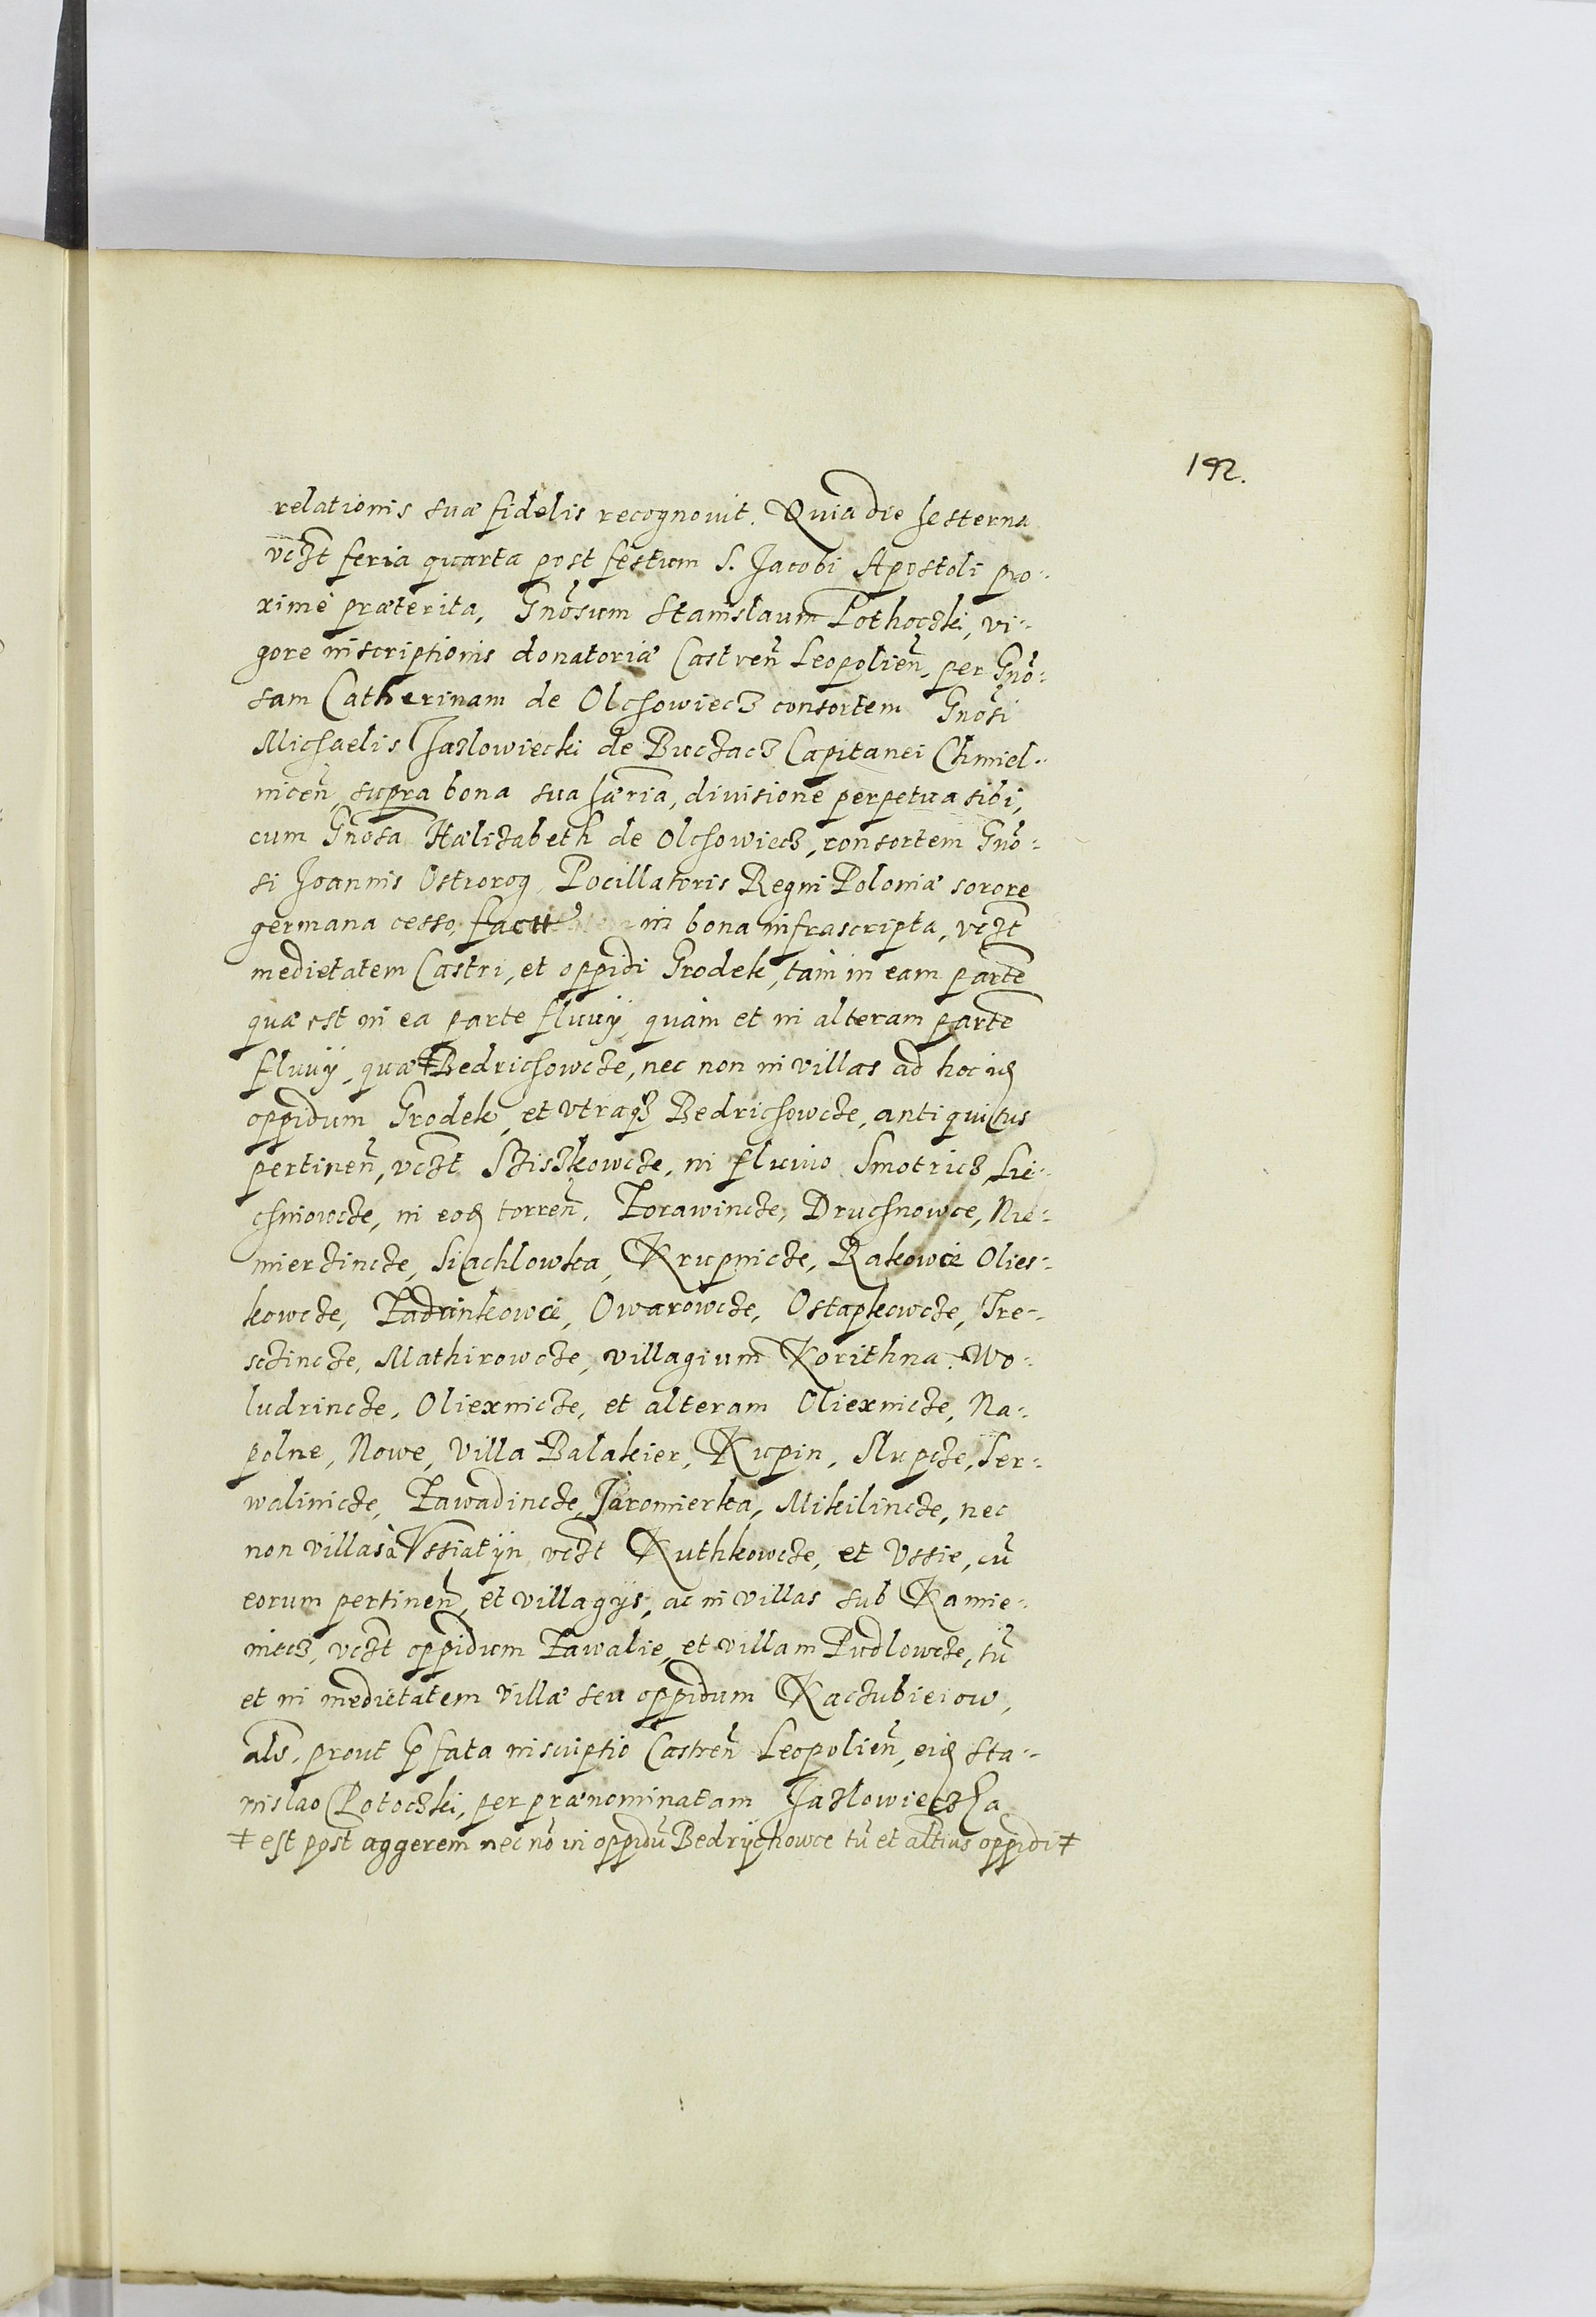 192.
relationis suæ fidelis recognouit. Quia die hesterna
vczt feria quarta post festum S. Jacobi Apostoli pro-
ximè præterita, Gnosum Stanislaum Pothoczki, vi-
gore inscriptionis donatoriæ Castren Leopolien, per Gno-
sam Catherinam de Olchowiecz consortem Gnosi
Michaelis Jazlowiecki de Buczacz Capitanei Chmiel-
nicen, supra bona sua hæria, divisione perpetua sibi,
cum Gnosa Halizabeth de Olchowiecz, consortem Gno-
si Joannis Ostrorog, Pocillatoris Regni Poloniæ sorore
germana cesso, in bona infrascripta, vczt
medietatem Castri, et oppidi Grodek, tam in eam parte
quæ est in ea parte fluuij, quàm et in alteram parte
fluuij, quæ ǂ Bedrichowcze, nec non in villas ad hoc id
oppidum Grodek, et vtraqz Bedrichowcze, antiquitus
pertinen, vczt Sziszkowcze, in fluuio Smotricz, Lie-
chniowcze, in eod torren, Zorawincze, Druchnowce, Nie-
mierzincze, Siachlowka, Krupnicze, Rakowce Olies-
kowcze, Zadunkowce, Owarowcze, Ostapkowcze, Tre-
sczincze, Mathirowcze, villagium Korithna, Wo-
ludrincze, Oliexnicze, et alteram Oliexnicze, Na-
polne, Nowe, Villa Balakier, Kupin, Slupcze, Ser-
walinicze, Zawadincze, Jaromierka, Mikilincze, nec
non villas à Vssiatijn vczt Kuthkowcze, et Vssie, cu
eorum pertinen, et villagijs, ac in villas sub Kamie-
niecz, vczt oppidum Zawalie, et villam Pudlowcze, tu
et in medietatem villæ seu oppidum Kaczubieiow,
als, prout pfata inscriptio Castren Leopolien, eid Sta-
nislao Potoczki, per prænominatam Jazlowieczka
ǂ est post aggerem nec no in oppidu Bedrychowce tu et altius oppidi ǂ